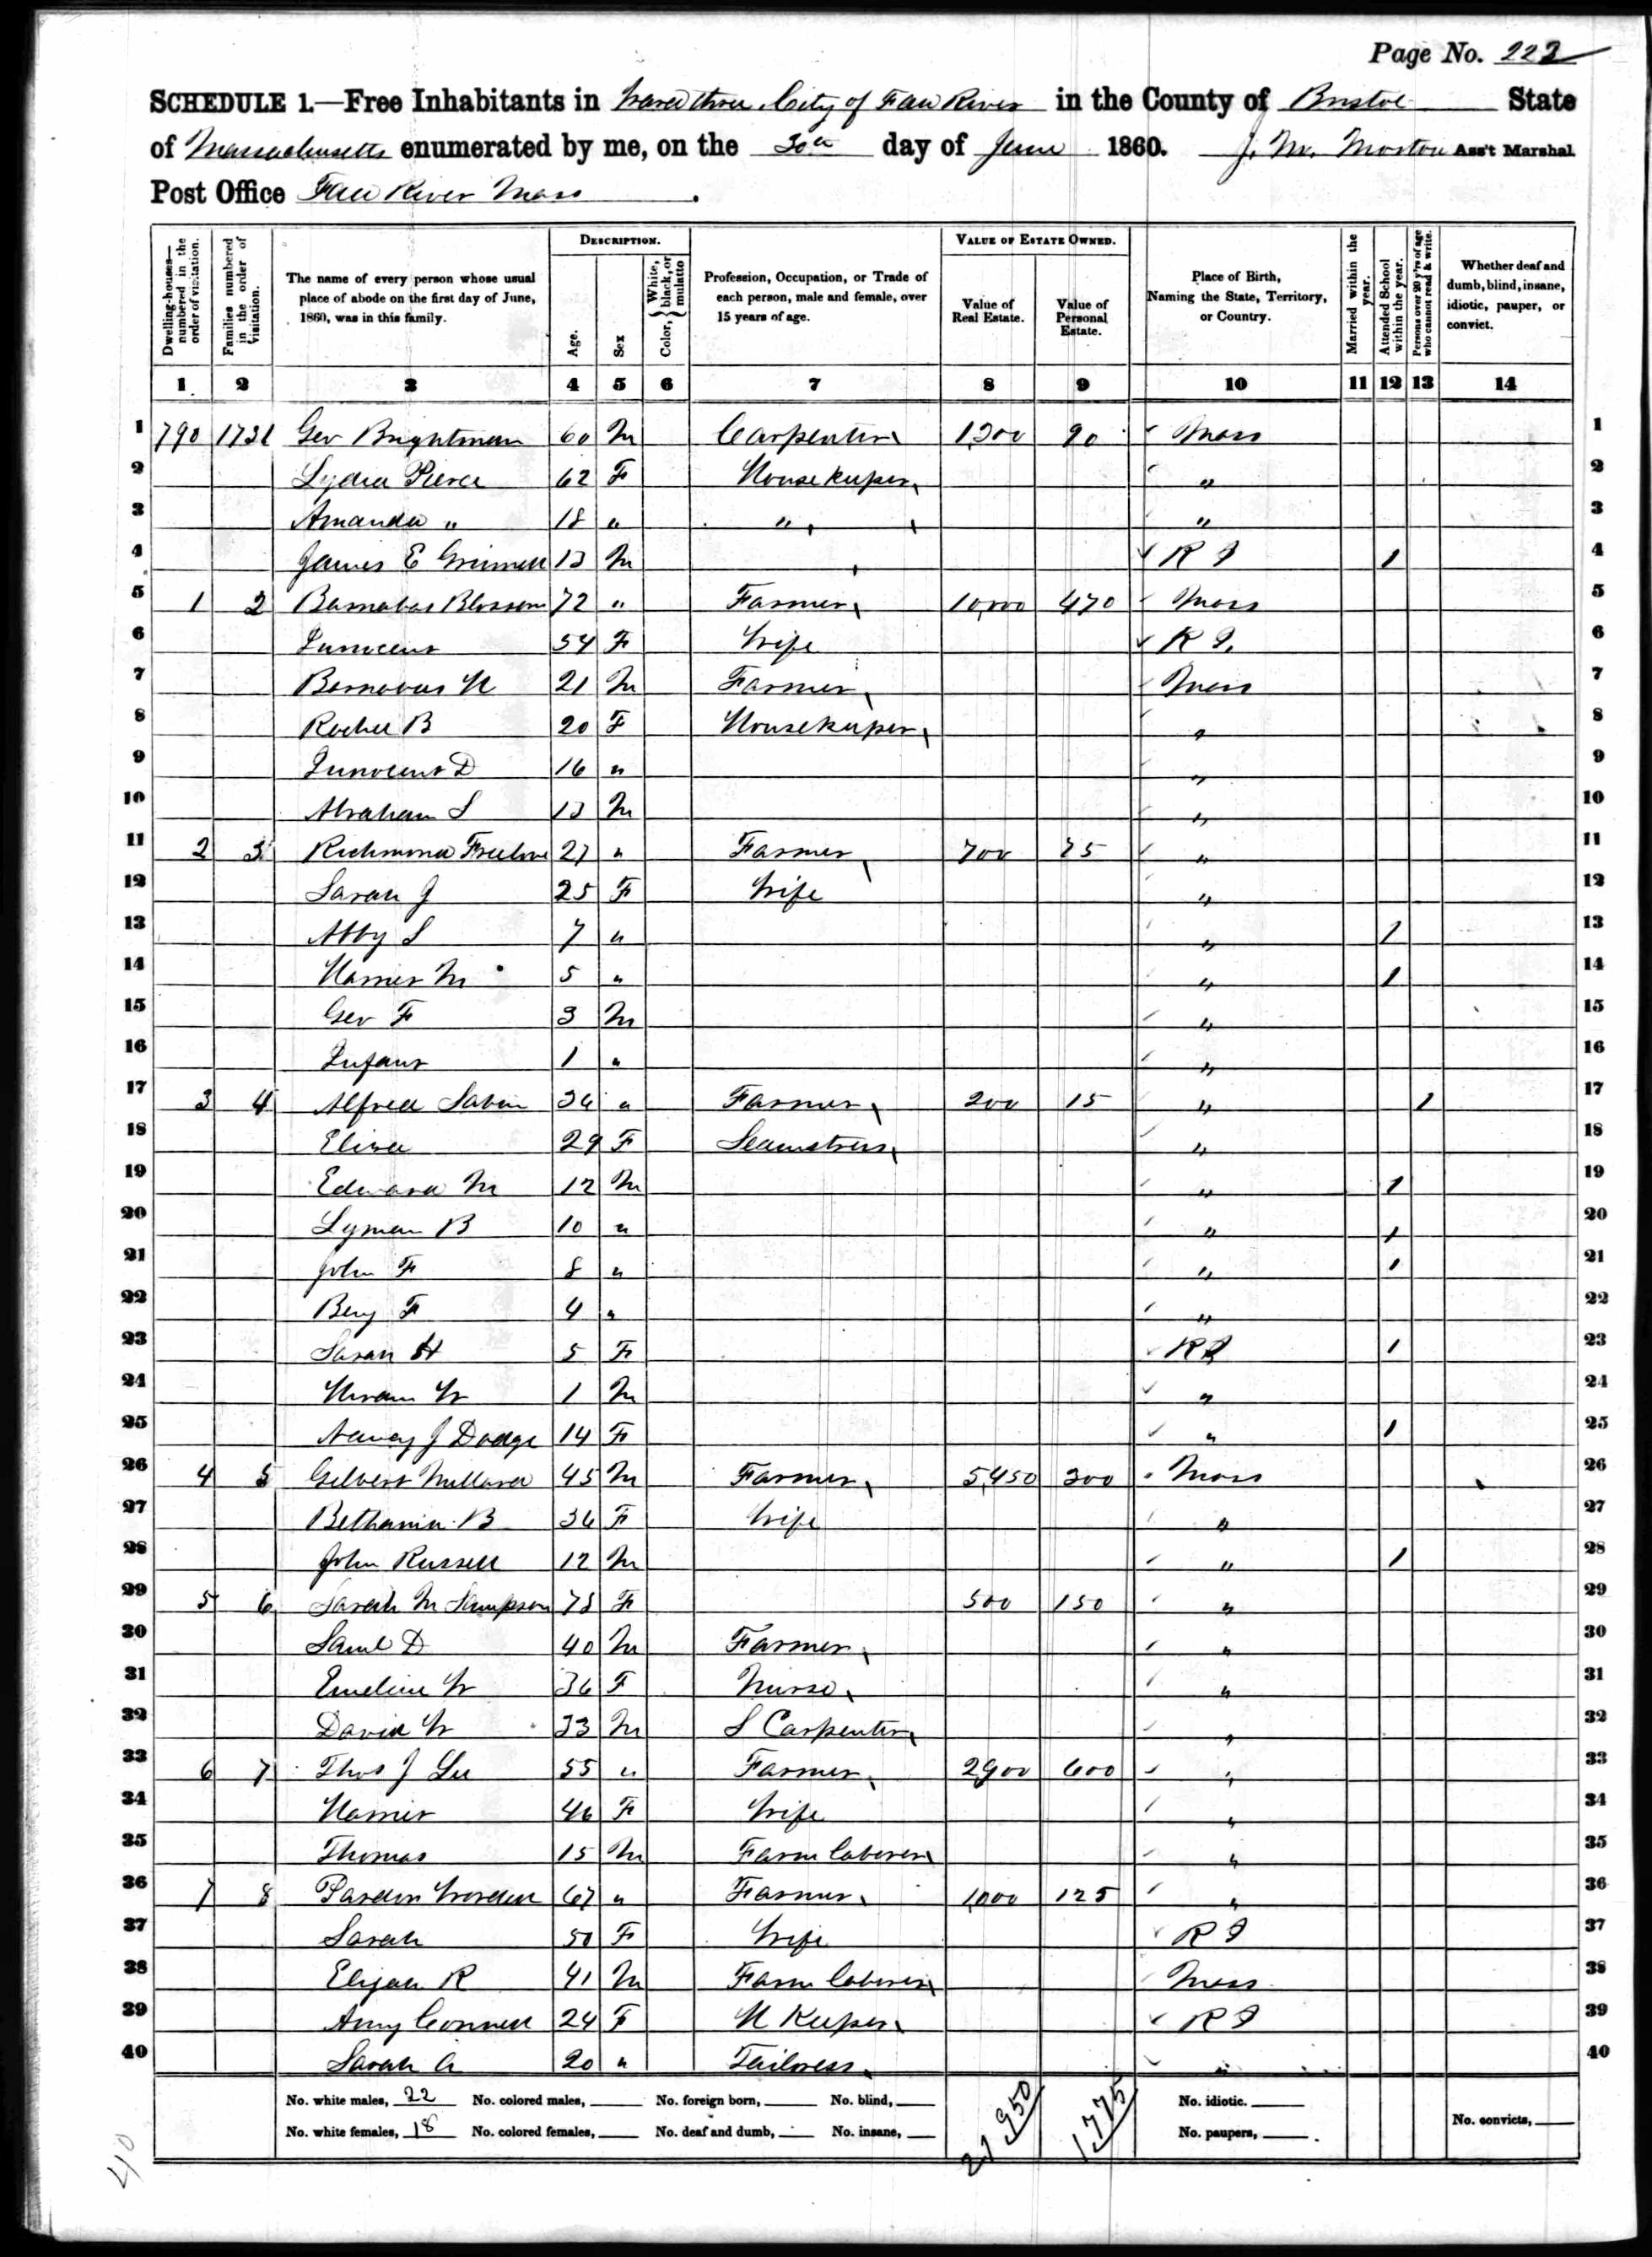 Page No. 223
SCHEDULE 1.—Free Inhabitants in Ward three City of Fall River in the County of Bristol State
of Massachusetts enumerated by me, on the 30th day of June 1860. J. M. Morton Ass't Marshal
Post Office Fall River Mass.
Dwelling-houses—numbered in the order of visitation. Families numbered in the order of visitation. The name of every person whose usual place of abode on the first day of June, 1860, was in this family. DESCRIPTION. Age. Sex Color, { White, black, or mulatto Profession, Occupation, or Trade of each person, male and female, over 15 years of age. VALUE OF ESTATE OWNED. Value of Real Estate. Value of Personal Estate. Place of Birth, Naming the State, Territory, or Country. Married within the year. Attended School within the year. Persons over 20 y'rs of age who cannot read & write. Whether deaf and dumb, blind, insane, idiotic, pauper, or convict.
1 2 3 4 5 6 7 8 9 10 11 12 13 14
1 790 1731 Geo Brightman 60 M Carpenter 1,200 90 Mass 1
2 Lydia Pierce 62 F Housekeeper " 2
3 Amanda " 18 " " " 3
4 James E Grinnell 13 M R I 1 4
5 1 2 Barnabas Blossom 72 " Farmer 10,000 470 Mass 5
6 Innocent 54 F Wife R I. 6
7 Barnabas H 21 M Farmer Mass 7
8 Rachel B 20 F Housekeeper " 8
9 Innocent D 16 " " 9
10 Abraham S 13 M " 10
11 2 3 Richmond Freelove 27 " Farmer 700 75 " 11
12 Sarah J 25 F Wife " 12
13 Abby S 7 " " 1 13
14 Harriet M 5 " " 1 14
15 Geo F 3 M " 15
16 Infant 1 " " 16
17 3 4 Alfred Sabin 36 " Farmer 200 15 " 1 17
18 Eliza 29 F Seamstress " 18
19 Edward M 12 M " 1 19
20 Lyman B 10 " " 1 20
21 John F 8 " " 1 21
22 Benj F 4 " " 22
23 Sarah H 5 F R I 1 23
24 Hiram W 1 M " 24
25 Nancy J Dodge 14 F " 1 25
26 4 5 Gilbert Millard 45 M Farmer 5,450 200 Mass 26
27 Bethania B 36 F Wife " 27
28 John Russell 12 M " 1 28
29 5 6 Sarah M Sampson 78 F 500 150 " 29
30 Saml D 40 M Farmer " 30
31 Emeline W 36 F Nurse " 31
32 David W 33 M S Carpenter " 32
33 6 7 Thos J Lee 55 " Farmer 2900 600 " 33
34 Harriet 46 F Wife " 34
35 Thomas 15 M Farm laborer " 35
36 7 8 Pardon Worden 67 " Farmer 1,000 125 " 36
37 Sarah 50 F Wife R I 37
38 Elijah R 41 M Farm laborer Mass 38
39 Amy Connell 24 F H Keeper R I 39
40 Sarah A 20 " Tailoress " 40
No. white males, 22 No. colored males, No. foreign born, No. blind, 21950 1,775 No. idiotic.
No. white females, 18 No. colored females, No. deaf and dumb, No. insane, No. paupers, No. convicts,
40